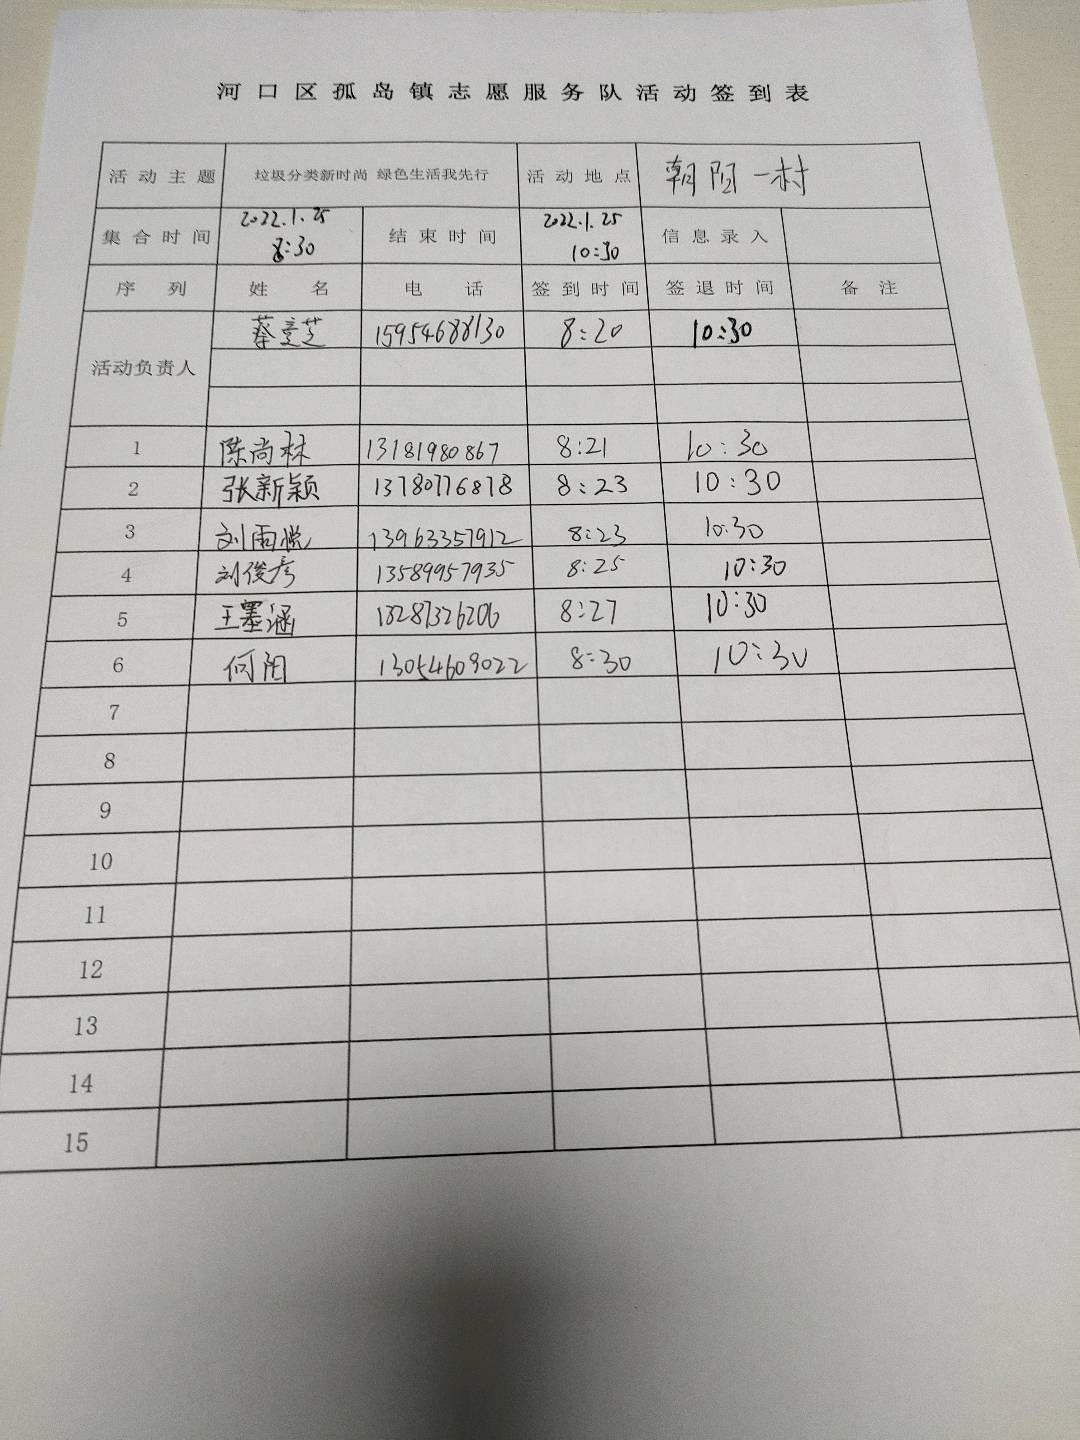 河口区孤岛镇志愿服务队活动签到表
活动主题 垃圾分类新时尚 绿色生活我先行 活动地点 朝阳一村
集合时间 2022.1.25 8:30 结束时间 2022.1.25 10:30 信息录入
序列 姓名 电话 签到时间 签退时间 备注
活动负责人 15954688130 8:20 10:30
1 陈尚林 13181980867 8:21 10:30
2 张新颖 13780776878 8:23 10:30
3 刘雨悦 13963357912 8:23 10:30
4 刘俊彦 13589957935 8:25 10:30
5 王墨涵 13287326206 8:27 10:30
6 何阳 13054609022 8:30 10:30
7
8
9
10
11
12
13
14
15